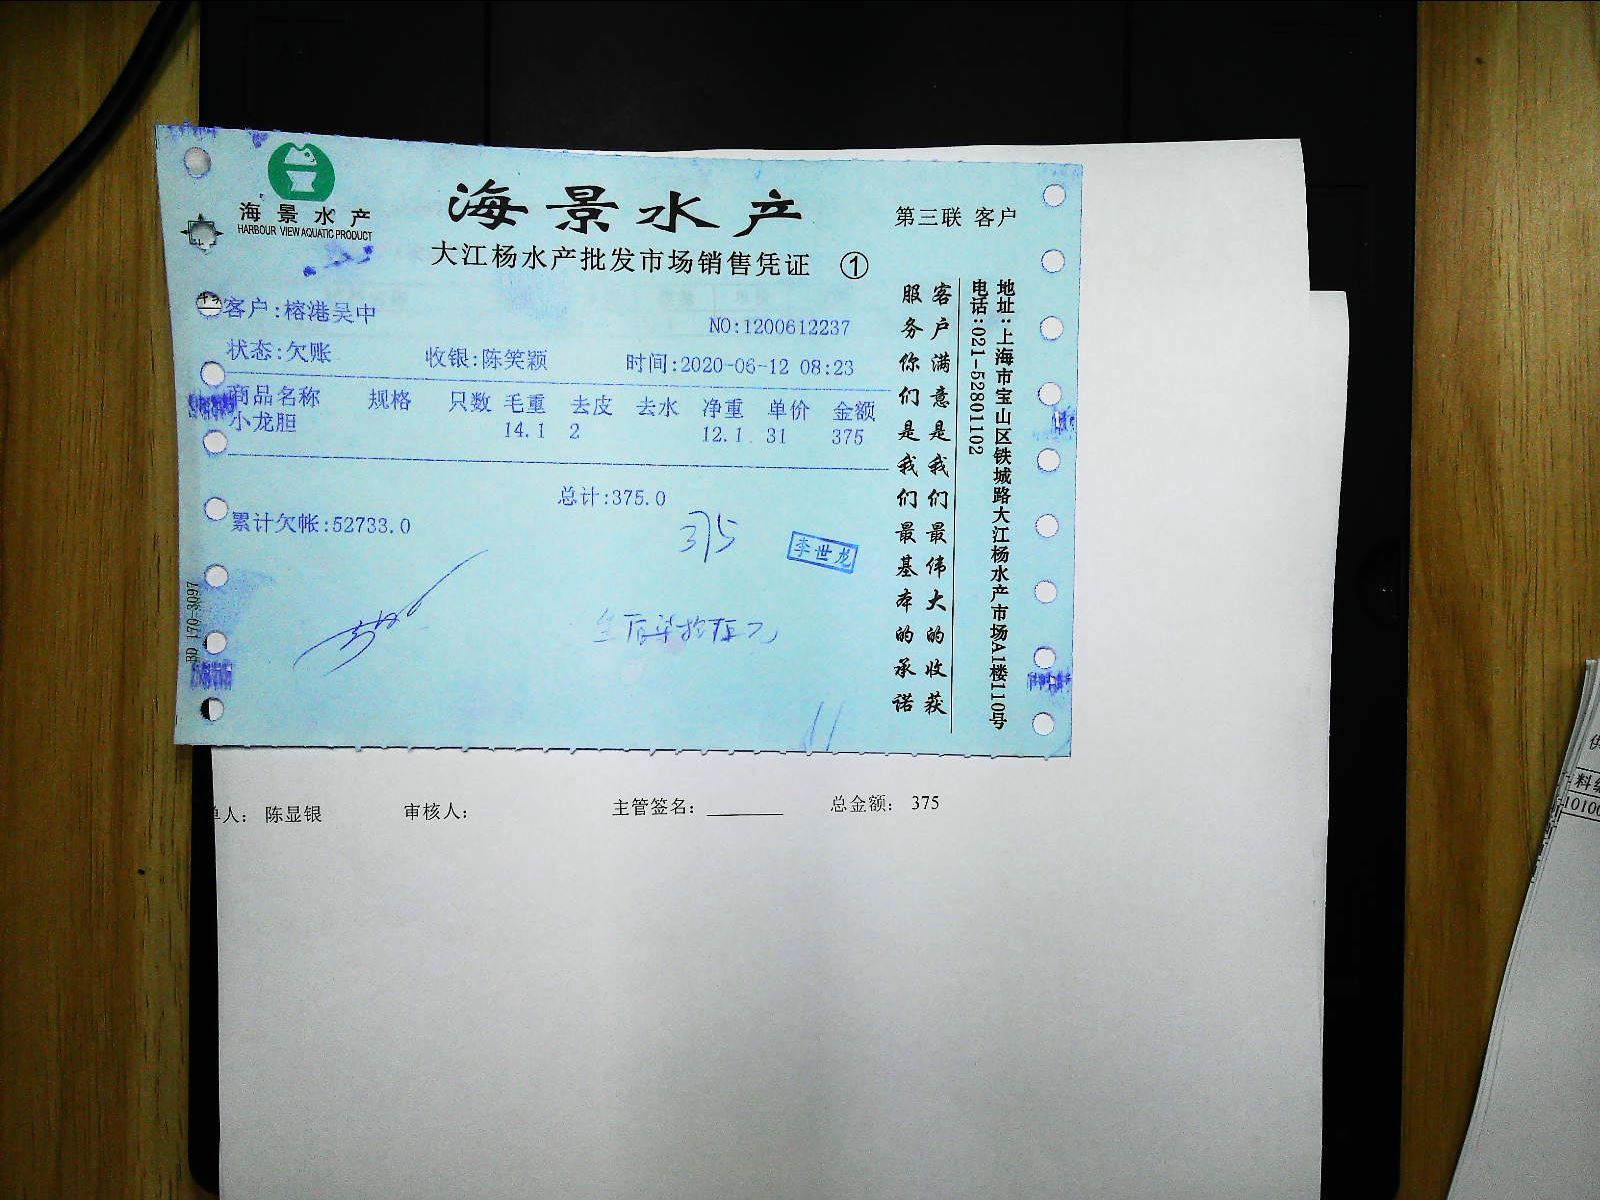 海景水产
HARBOUR VIEW AQUATIC PRODUCT
海景水产
第三联 客户
大江杨水产批发市场销售凭证 ①
客户:榕港吴中
NO:1200612237
状态:欠账 收银:陈笑颖 时间:2020-06-12 08:23
商品名称 规格 只数 毛重 去皮 去水 净重 单价 金额
小龙胆 14.1 2 12.1 31 375
总计:375.0
累计欠帐:52733.0
375
李世龙
客户满意是我们最伟大的收获
服务你们是我们最基本的承诺
地址:上海市宝山区铁城路大江杨水产市场A1楼110号
电话:021-52801102
BD 170-3097
单人: 陈显银 审核人: 主管签名: 总金额: 375
料